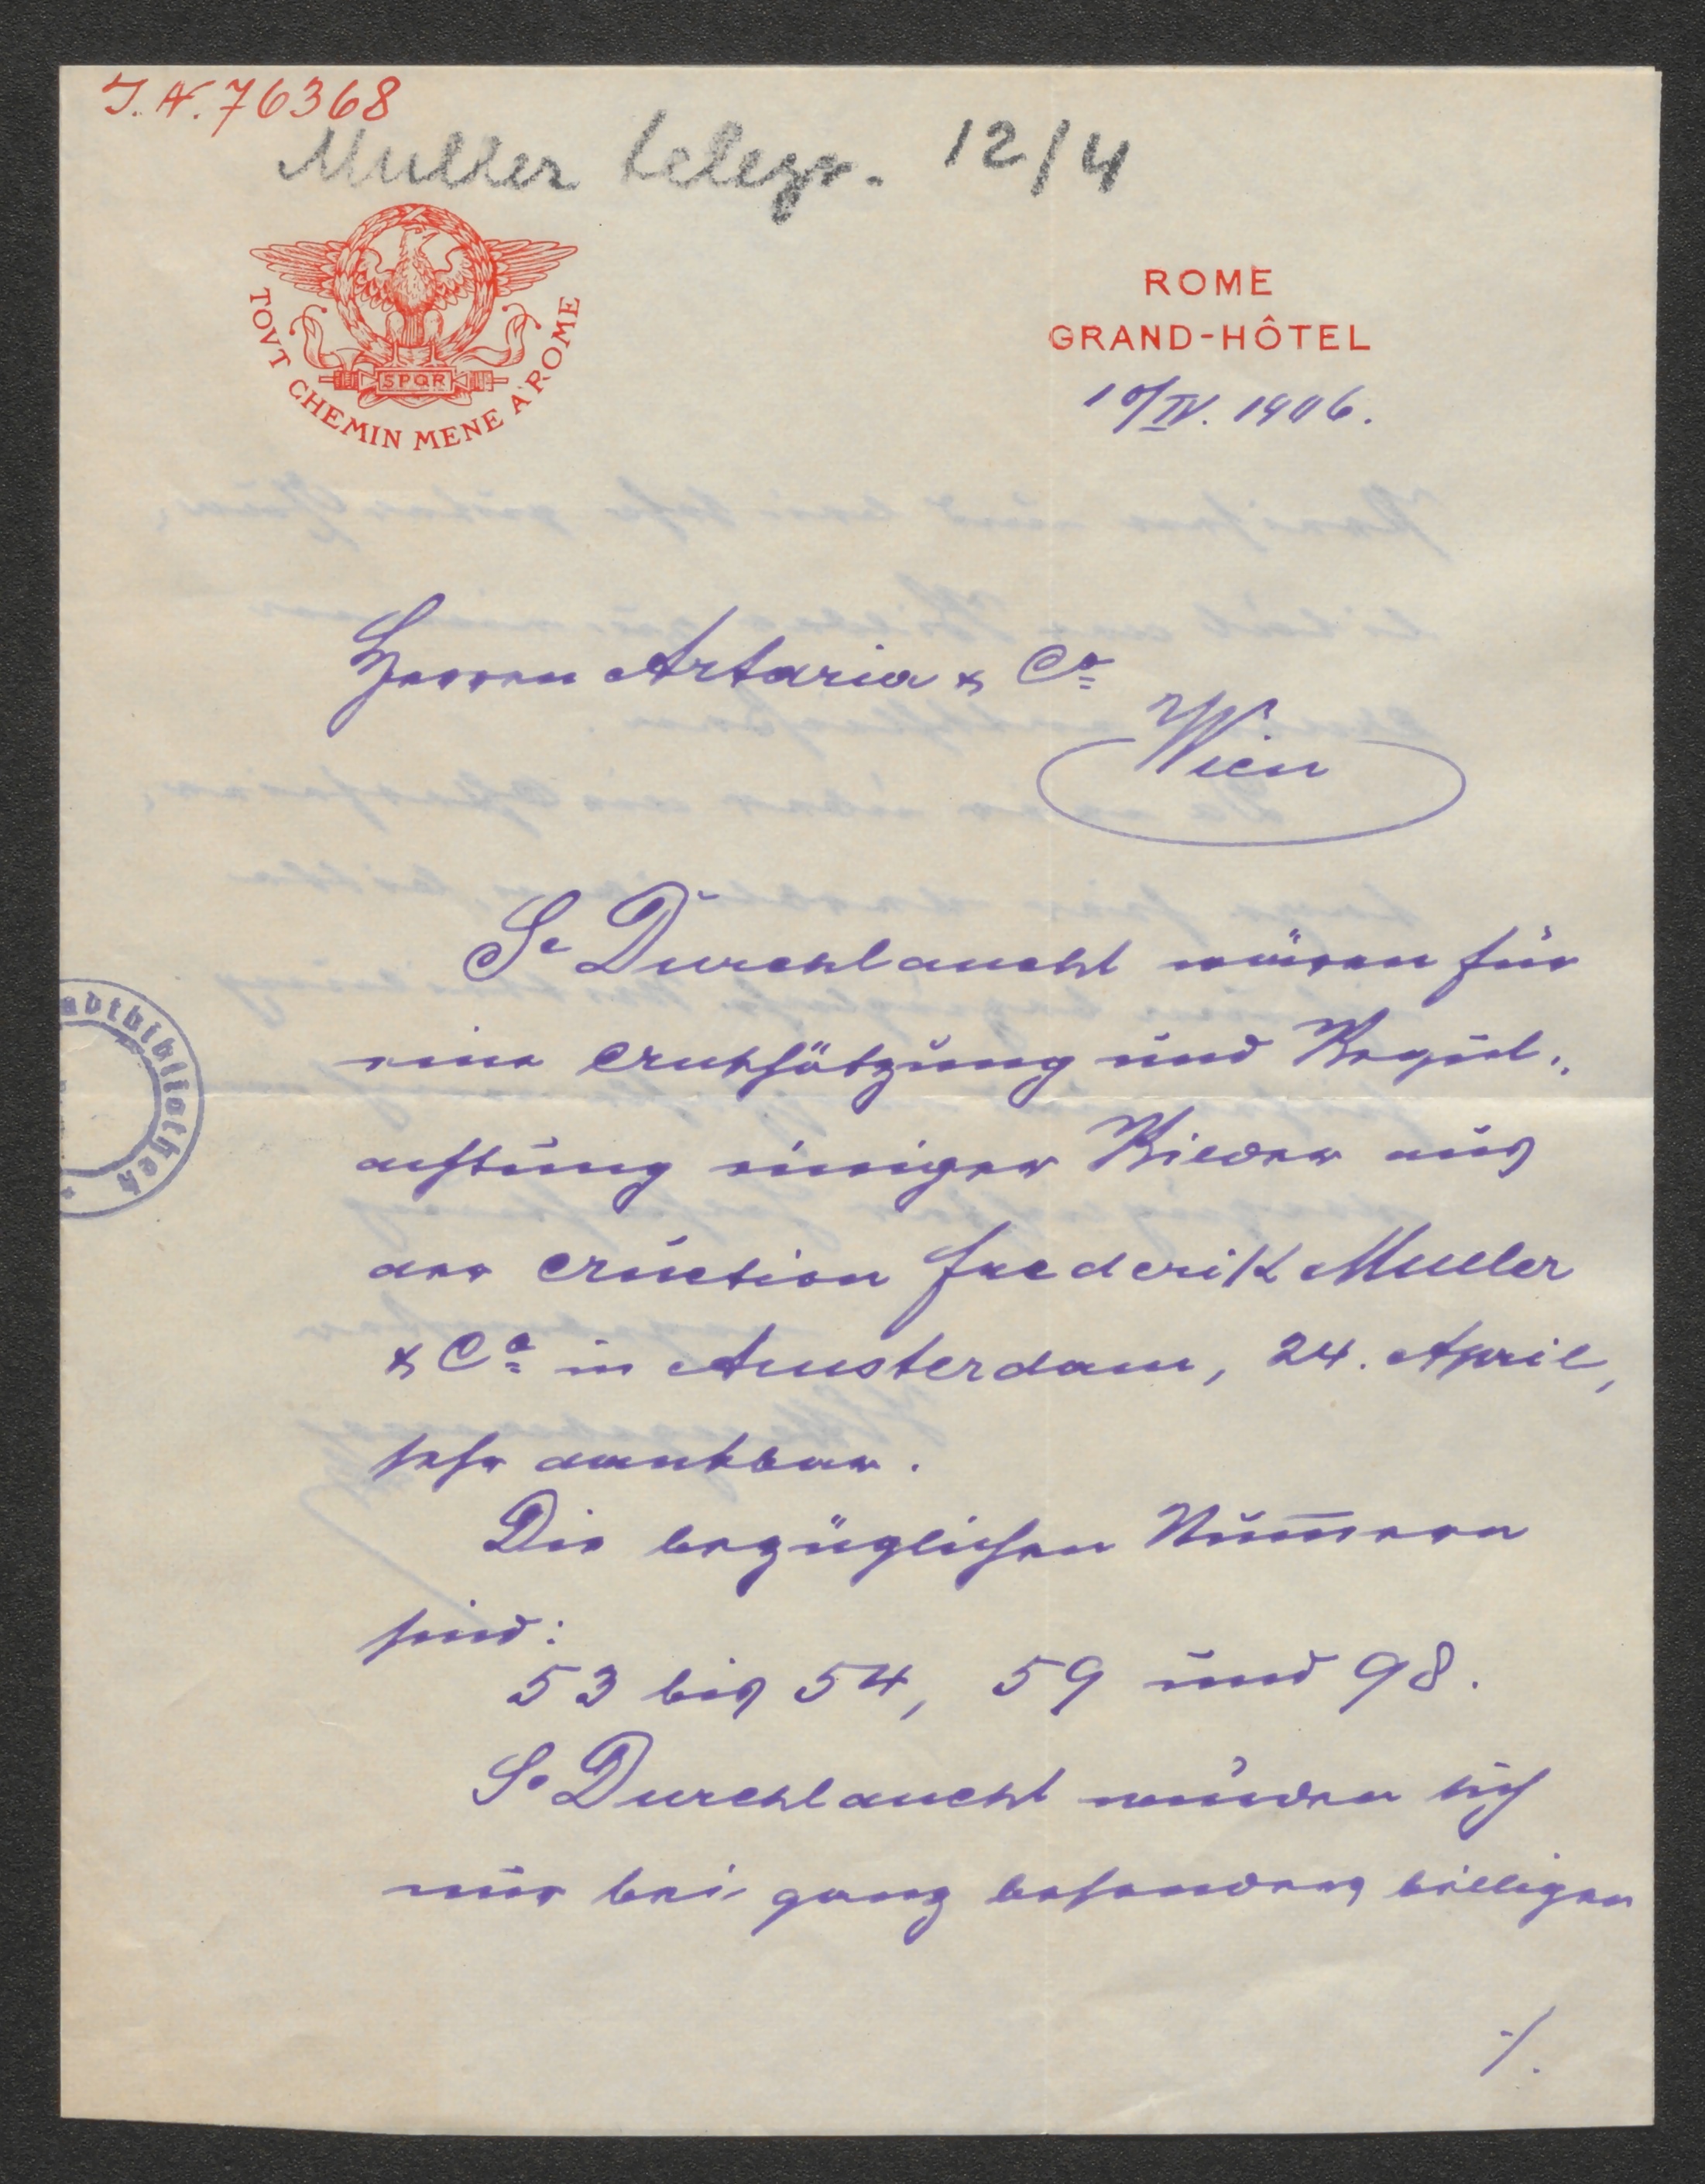 I. N. 76368
Muller telegr. 12/4
TOVT CHEMIN MENE A ROME
SPQR
ROME
GRAND-HÔTEL
10/IV. 1906.
Herren Artaria & Co
Wien
Se Durchlaucht wären für
eine Abschätzung und Begut-
achtung einiger Bilder aus
der Auction Frederik Muller
& Co in Amsterdam, 24. April,
sehr dankbar.
Die bezüglichen Num̅ern
sind:
53 bis 54, 59 und 98.
Se Durchlaucht würden sich
nur bei ganz besonders billigen
./.
adtbibliothek